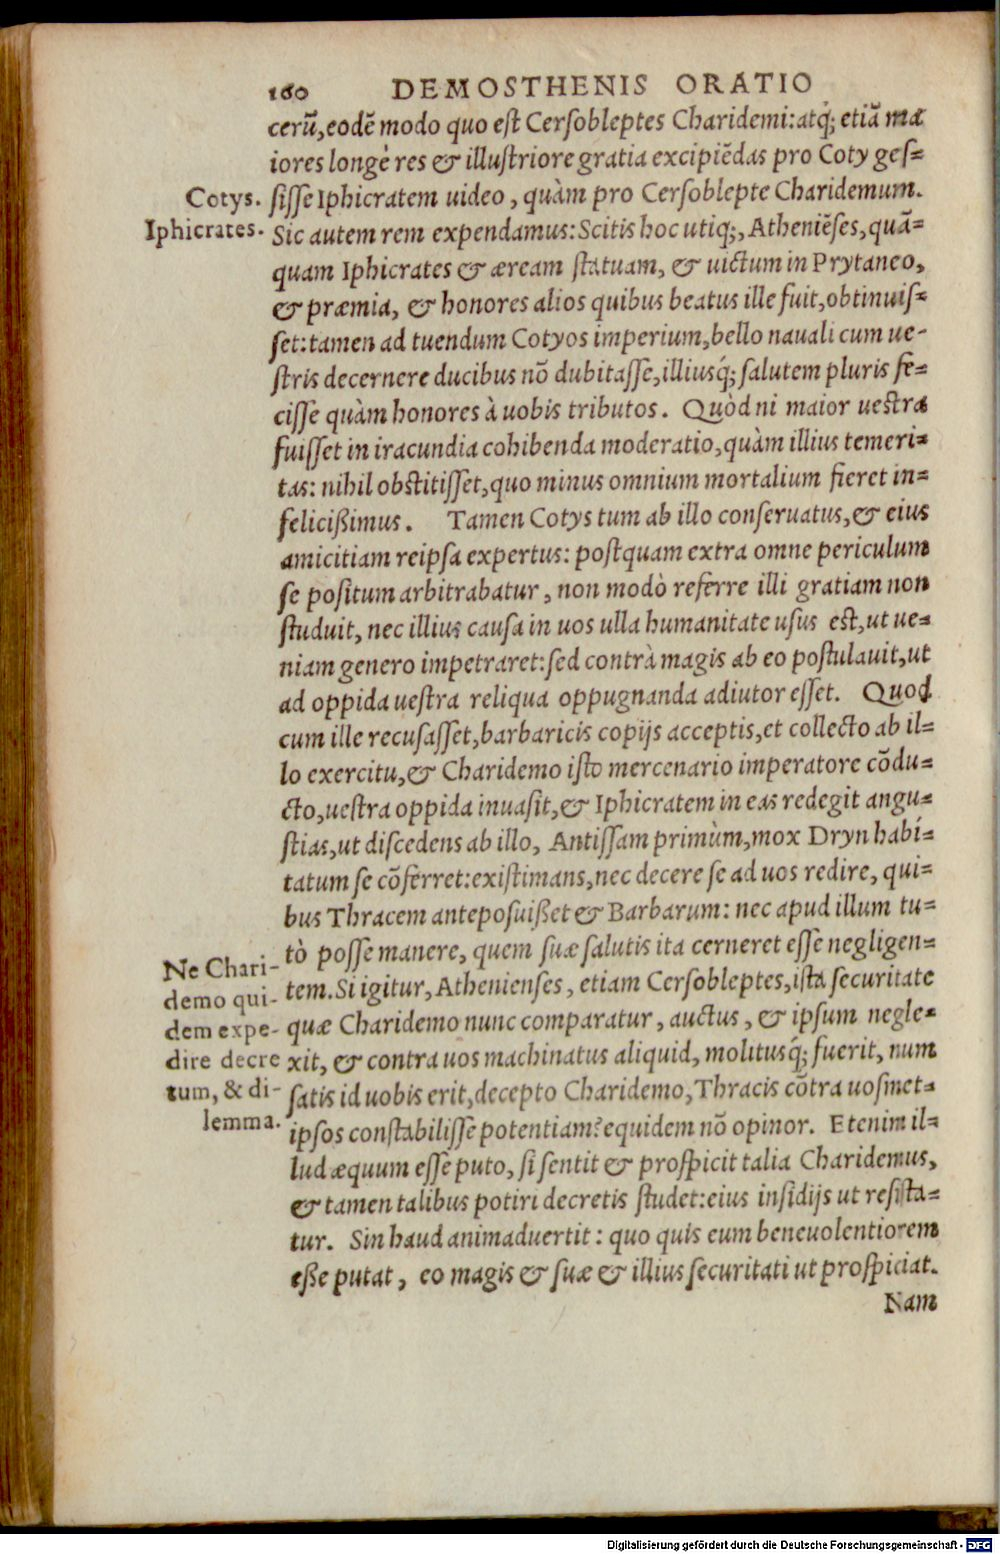 160 DEMOSTHENIS ORATIO
cerũ, eodẽ modo quo est Cersobleptes Charidemi: atq́; etiã ma
iores longè res & illustriore gratia excipiẽdas pro Coty ges=
Cotys.
sisse Iphicratem uideo, quàm pro Cersoblepte Charidemum.
Iphicrates.
Sic autem rem expendamus: Scitis hoc utiq;, Atheniẽses, quã=
quam Iphicrates & æream statuam, & uictum in Prytaneo,
& præmia, & honores alios quibus beatus ille fuit, obtinuis=
set: tamen ad tuendum Cotyos imperium, bello nauali cum ue-
stris decernere ducibus nõ dubitasse, illiusq́; salutem pluris fe=
cisse quàm honores à uobis tributos. Quòd ni maior uestra
fuisset in iracundia cohibenda moderatio, quàm illius temeri=
tas: nihil obstitisset, quo minus omnium mortalium fieret in=
felicißimus. Tamen Cotys tum ab illo conseruatus, & eius
amicitiam reipsa expertus: postquam extra omne periculum
se positum arbitrabatur, non modò referre illi gratiam non
studuit, nec illius causa in uos ulla humanitate usus est, ut ue=
niam genero impetraret: sed contrà magis ab eo postulauit, ut
ad oppida uestra reliqua oppugnanda adiutor esset. Quod
cum ille recusasset, barbaricis copijs acceptis, et collecto ab il=
lo exercitu, & Charidemo isto mercenario imperatore cõdu=
cto, uestra oppida inuasit, & Iphicratem in eas redegit angu=
stias, ut discedens ab illo, Antissam primùm, mox Dryn habi=
tatum se cõferret: existimans, nec decere se ad uos redire, qui=
bus Thracem anteposuißet & Barbarum: nec apud illum tu=
tò posse manere, quem suæ salutis ita cerneret esse negligen=
Ne Chari-
demo qui-
dem expe-
dire decre
tum, & di-
lemma.
tem. Si igitur, Athenienses, etiam Cersobleptes, ista securitate
quæ Charidemo nunc comparatur, auctus, & ipsum negle=
xit, & contra uos machinatus aliquid, molitusq́; fuerit, num
satis id uobis erit, decepto Charidemo, Thracis cõtra uosmet=
ipsos constabilisse potentiam? equidem nõ opinor. Etenim il=
lud æquum esse puto, si sentit & prospicit talia Charidemus,
& tamen talibus potiri decretis studet: eius insidijs ut resista=
tur. Sin haud animaduertit: quo quis eum beneuolentiorem
eße putat, eo magis & suæ & illius securitati ut prospiciat.
Nam
Digitalisierung gefördert durch die Deutsche Forschungsgemeinschaft - DFG